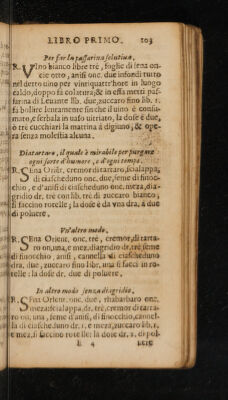 LIBRO PRIMO. 103
Per far la passarina solutiua.
R. VIno bianco libre trè, foglie di sena on-
cie otto, anisi onc. due infondi tutto
nel detto uino per vintiquatt'hore in luogo
caldo, doppo fà colatura, & in essa metti pas-
sarina di Leuante lib. due, zuccaro fino lib. 1.
fà bollire lentamente fin che il uino è consu-
mato, e serbala in uaso uitriato, la dose è due,
o tre cucchiari la mattina à digiuno, & ope-
ra senza molestia alcuna.
Diatartaro, il quale è mirabile per purgare
ogni sorte d'humore, e d'ogni tempo.
R. SEna Orient. cremor di tartaro, scialappa,
di ciascheduno onc. due, seme di finoc-
chio, e d'anisi di ciascheduno onc. meza, dia-
gridio dr. trè con lib. trè di zuccaro bianco,
si faccino rotelle; la dose è da vna dra. à due
di poluere.
Vn'altro modo.
R. SEna Orient. onc. trè, cremor di tarta-
ro on. una, e mez. diagridio dr. trè seme
di finocchio, anisi, cannella di ciascheduno
dra. due, zuccaro fino libr. una si facci in ro-
telle: la dose dr. due di poluere.
In altro modo senza diagridio.
R. SEna Orient. onc. due, rhabarbaro onc.
meza scialappa, dr. trè, cremor di tarta-
ro on. una, seme d'anisi, di finocchio, cannel-
la di ciascheduno dr. 1. e meza, zuccaro lib. 1.
e mez. si faccino rotelle: la dose dr. 1. di pol-
E 4